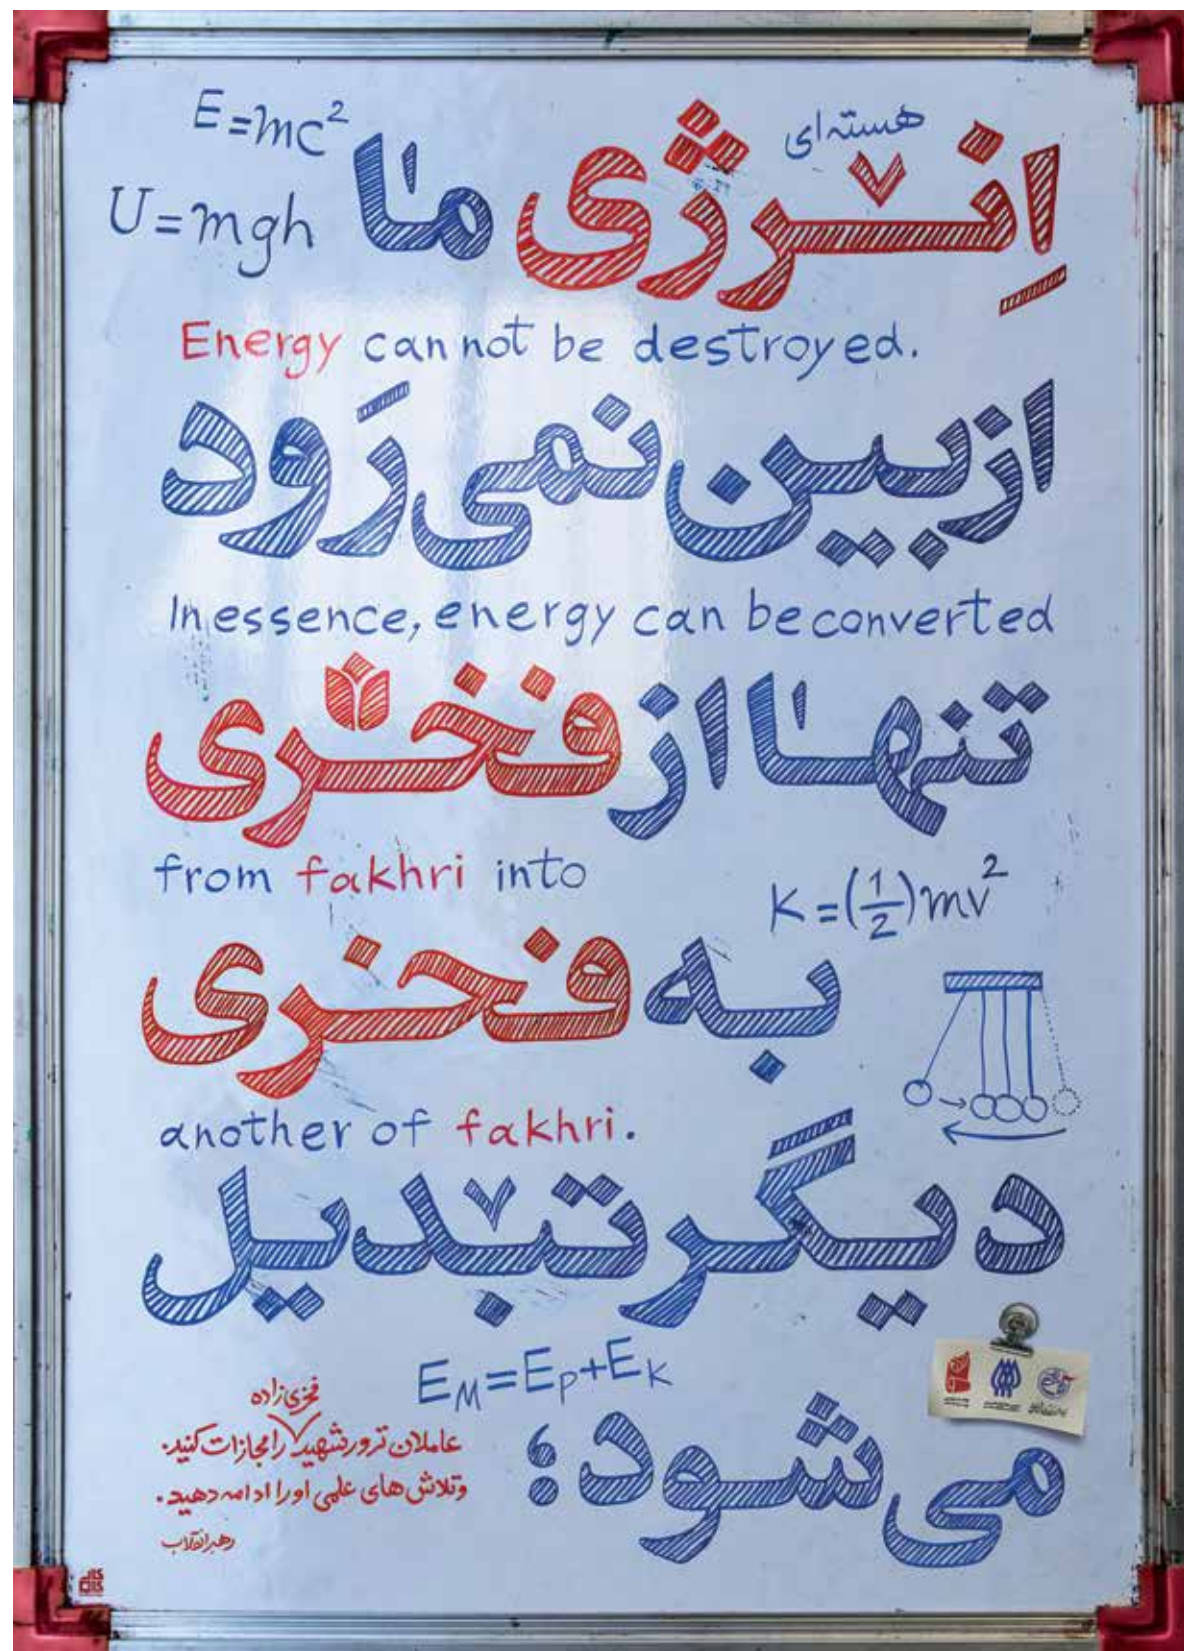 E=mc²
هسته‌ای
اِنرژی ما
U=mgh
Energy cannot be destroyed.
از بین نمی‌رَود
In essence, energy can be converted
تنها از فخری
from fakhri into
K=(1/2)mv²
به فخری
another of fakhri.
دیگر تبدیل
E_M=E_P+E_K
می‌شود؛
فخری‌زاده
عاملان ترور شهید را مجازات کنید.
و تلاش‌های علمی او را ادامه دهید.
رهبر انقلاب